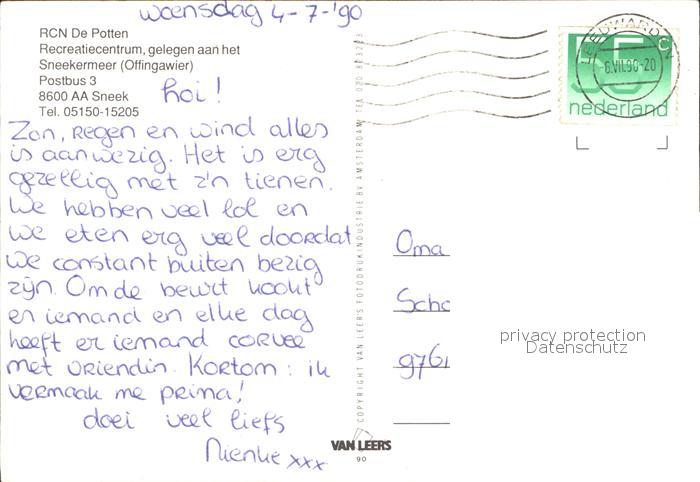 woensdag 4-7-'90
RCN De Potten
Recreatiecentrum, gelegen aan het
Sneekermeer (Offingawier)
Postbus 3
8600 AA Sneek
Tel. 05150-15205
hoi!
Zon, regen en wind alles
is aanwezig. Het is erg
gezellig met z'n tienen.
We hebben veel lol en
we eten erg veel doordat
we constant buiten bezig
zijn. Om de beurt kookt
er iemand en elke dag
heeft er iemand corvee
met vriendin. Kortom: ik
vermaak me prima!
doei veel liefs
Nienke xxx
COPYRIGHT VAN LEER'S FOTODRUKINDUSTRIE BV AMSTERDAM
VAN LEERS
90
LEEUWARDEN
6.VII.90-20
55 c
nederland
Oma
Scho
9761
privacy protection
Datenschutz